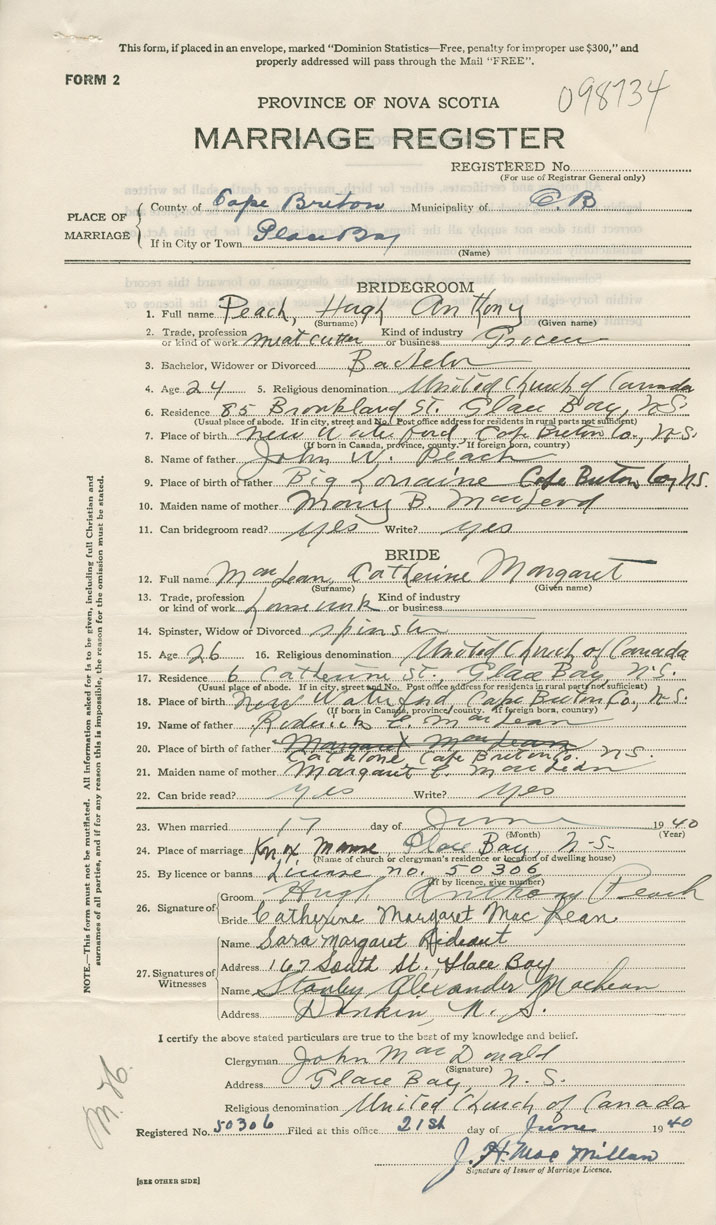 This form, if placed in an envelope, marked "Dominion Statistics—Free, penalty for improper use $300," and
properly addressed will pass through the Mail "FREE".
FORM 2
098734
PROVINCE OF NOVA SCOTIA
MARRIAGE REGISTER
REGISTERED No.
(For use of Registrar General only)
PLACE OF MARRIAGE
County of Cape Breton Municipality of C.B
If in City or Town Glace Bay
(Name)
BRIDEGROOM
1. Full name Peach, Hugh Anthony
(Surname) (Given name)
2. Trade, profession or kind of work meat cutter Kind of industry or business Grocery
3. Bachelor, Widower or Divorced Bachelor
4. Age 24 5. Religious denomination United Church of Canada
6. Residence 85 Brookland St. Glace Bay, N.S.
(Usual place of abode. If in city, street and No. Post office address for residents in rural parts not sufficient)
7. Place of birth New Waterford, Cape Breton Co., N.S.
(If born in Canada, province, county. If foreign born, country)
8. Name of father John W. Peach
9. Place of birth of father Big Lorraine Cape Breton Co, N.S.
10. Maiden name of mother Mary B. MacLeod
11. Can bridegroom read? yes Write? yes
BRIDE
12. Full name MacLean, Catherine Margaret
(Surname) (Given name)
13. Trade, profession or kind of work Housework Kind of industry or business
14. Spinster, Widow or Divorced spinster
15. Age 26 16. Religious denomination United Church of Canada
17. Residence 6 Catherine St., Glace Bay, N.S.
(Usual place of abode. If in city, street and No. Post office address for residents in rural parts not sufficient)
18. Place of birth New Waterford Cape Breton Co., N.S.
(If born in Canada, province, county. If foreign born, country)
19. Name of father Roderick C. MacLean
20. Place of birth of father Margaret MacLean
Catalone, Cape Breton Co. N.S.
21. Maiden name of mother Margaret C. MacLean
22. Can bride read? yes Write? yes
23. When married 17 day of June 1940
(Month) (Year)
24. Place of marriage Knox Manse, Glace Bay, N.S.
(Name of church or clergyman's residence or location of dwelling house)
25. By licence or banns License no. 50306
(If by licence, give number)
26. Signature of
Groom Hugh Anthony Peach
Bride Catherine Margaret MacLean
27. Signatures of Witnesses
Name Sara Margaret Rideout
Address 167 South St. Glace Bay
Name Stanley Alexander MacLean
Address Donkin, N.S.
I certify the above stated particulars are true to the best of my knowledge and belief.
Clergyman John MacDonald
(Signature)
Address Glace Bay, N.S.
Religious denomination United Church of Canada
Registered No. 50306 Filed at this office 21st day of June 1940
J. H. MacMillan
Signature of Issuer of Marriage Licence.
[SEE OTHER SIDE]
NOTE.—This form must not be mutilated. All information asked for is to be given, including full Christian and
surnames of all parties, and if for any reason this is impossible, the reason for the omission must be stated.
M.H.